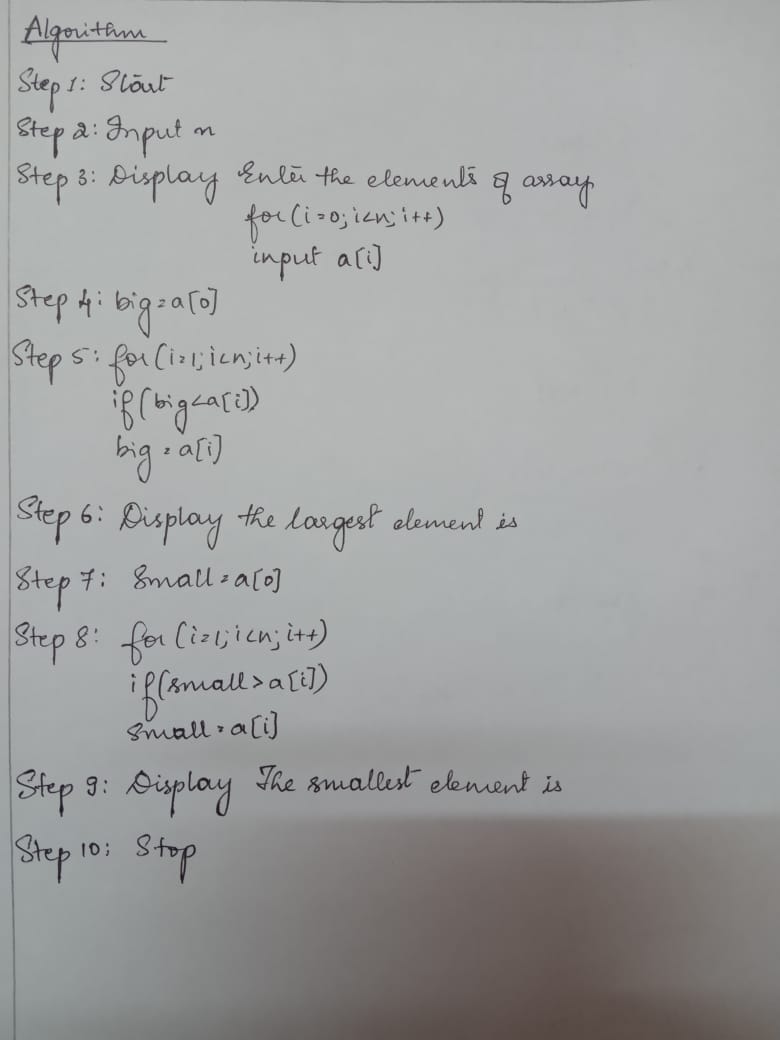 Algorithm
Step 1: Start
Step 2: Input n
Step 3: Display Enter the elements of array
for(i=0;i<n;i++)
input a[i]
Step 4: big=a[0]
Step 5: for(i=1;i<n;i++)
if(big<a[i])
big=a[i]
Step 6: Display the largest element is
Step 7: Small=a[0]
Step 8: for(i=1;i<n;i++)
if(small>a[i])
small=a[i]
Step 9: Display The smallest element is
Step 10: Stop